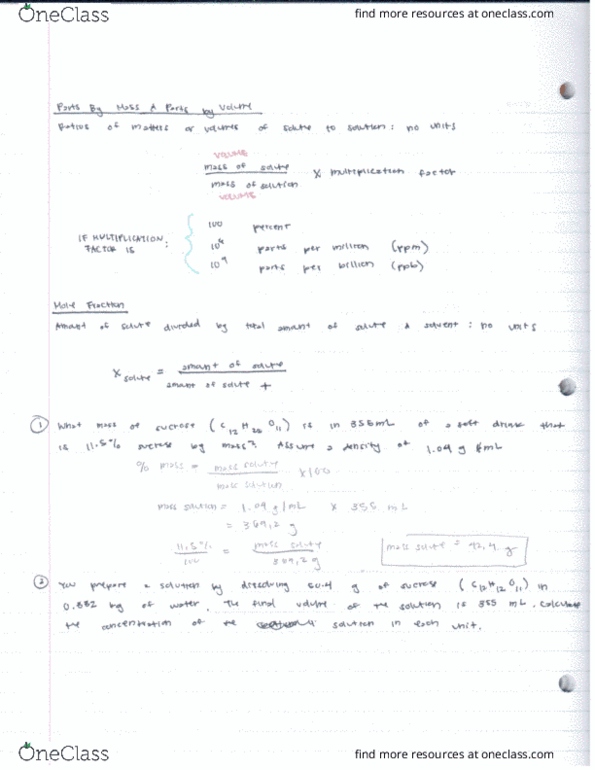 OneClass
find more resources at oneclass.com
Parts By Mass & Parts by Volume
Ratios of masses or volumes of solute to solution: no units
VOLUME
mass of solute
mass of solution
VOLUME
X multiplication factor
IF MULTIPLICATION FACTOR IS :
100 percent
10⁶ parts per million (ppm)
10⁹ parts per billion (ppb)
Mole Fraction
Amount of solute divided by total amount of solute & solvent : no units
X solute = amount of solute
amount of solute +
① What mass of sucrose (C12H22O11) is in 355mL of a soft drink that
is 11.5% sucrose by mass? Assume a density of 1.04 g/mL
% mass = mass solute
mass solution
x100
mass solution = 1.04 g/mL x 355 mL
= 369.2 g
11.5%
100
= mass solute
369.2 g
mass solute = 42.4 g
② You prepare a solution by dissolving 50.4 g of sucrose (C12H12O11) in
0.332 kg of water. The final volume of the solution is 355 mL. calculate
the concentration of the solution in each unit.
OneClass
find more resources at oneclass.com